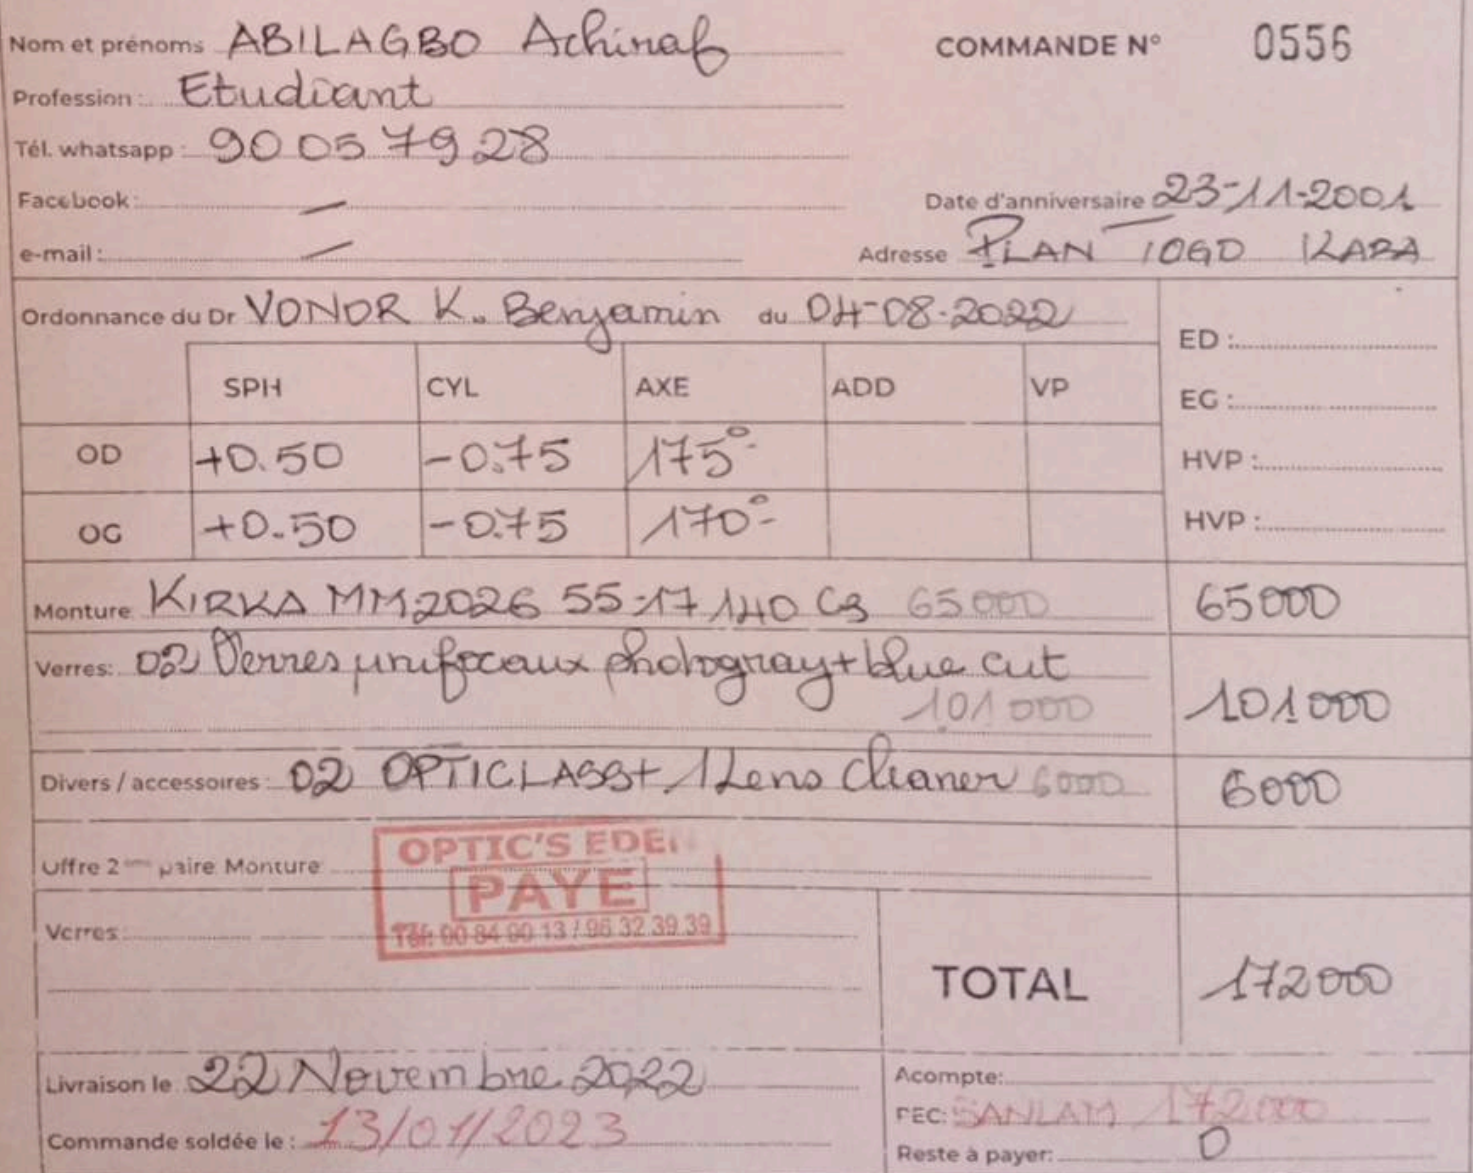 Nom et prénoms ABILAGBO Achiraf COMMANDE N° 0556
Profession : Etudiant
Tél. whatsapp : 90 05 79 28
Facebook : — Date d'anniversaire 23-11-2001
e-mail : — Adresse PLAN TOGO KARA
Ordonnance du Dr VONOR K. Benjamin du 04-08-2022
ED :
SPH CYL AXE ADD VP
EG :
OD +0.50 -0.75 175° HVP :
OG +0.50 -0.75 170° HVP :
Monture KIRKA MM2026 55-17 140 C3 65000 65000
Verres: 02 Verres unifocaux photogray+blue cut
101 000 101000
Divers / accessoires : 02 OPTICLASS+ 1 Lens cleaner 6000 6000
OPTIC'S EDEN
Offre 2ème paire Monture
PAYE
Verres : Tél: 90 84 90 13 / 96 32 39 39
TOTAL 172000
Livraison le 22 Novembre 2022 Acompte:
PEC: SANLAM 172000
Commande soldée le : 13/01/2023
Reste à payer: 0